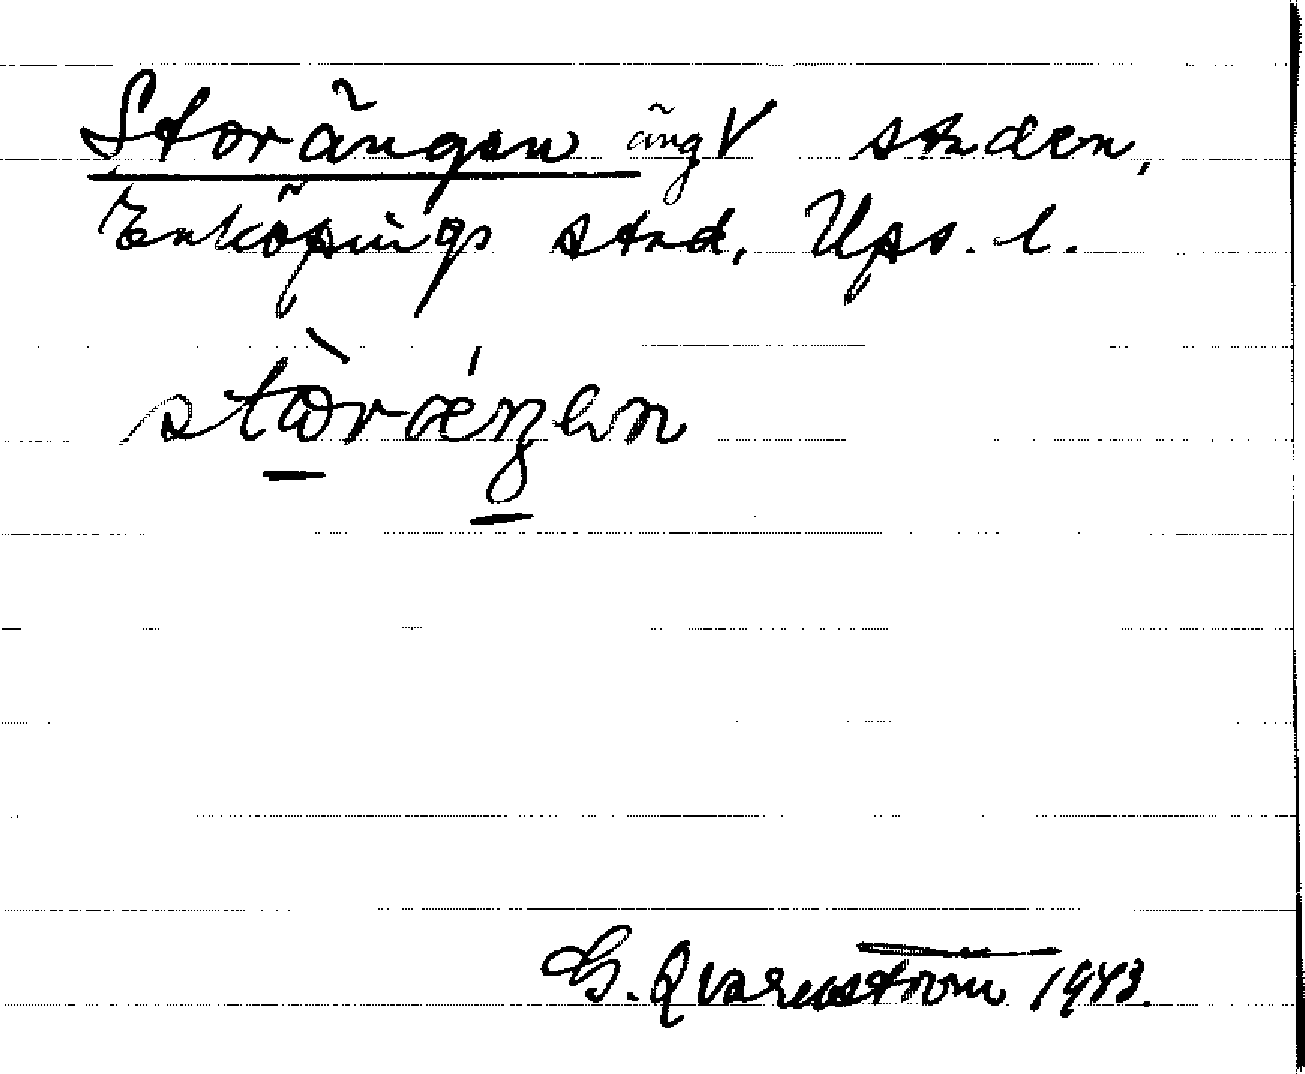 Storängen äng V staden,
Enköpings stad, Ups. l.
G. Qvarnström 1943.